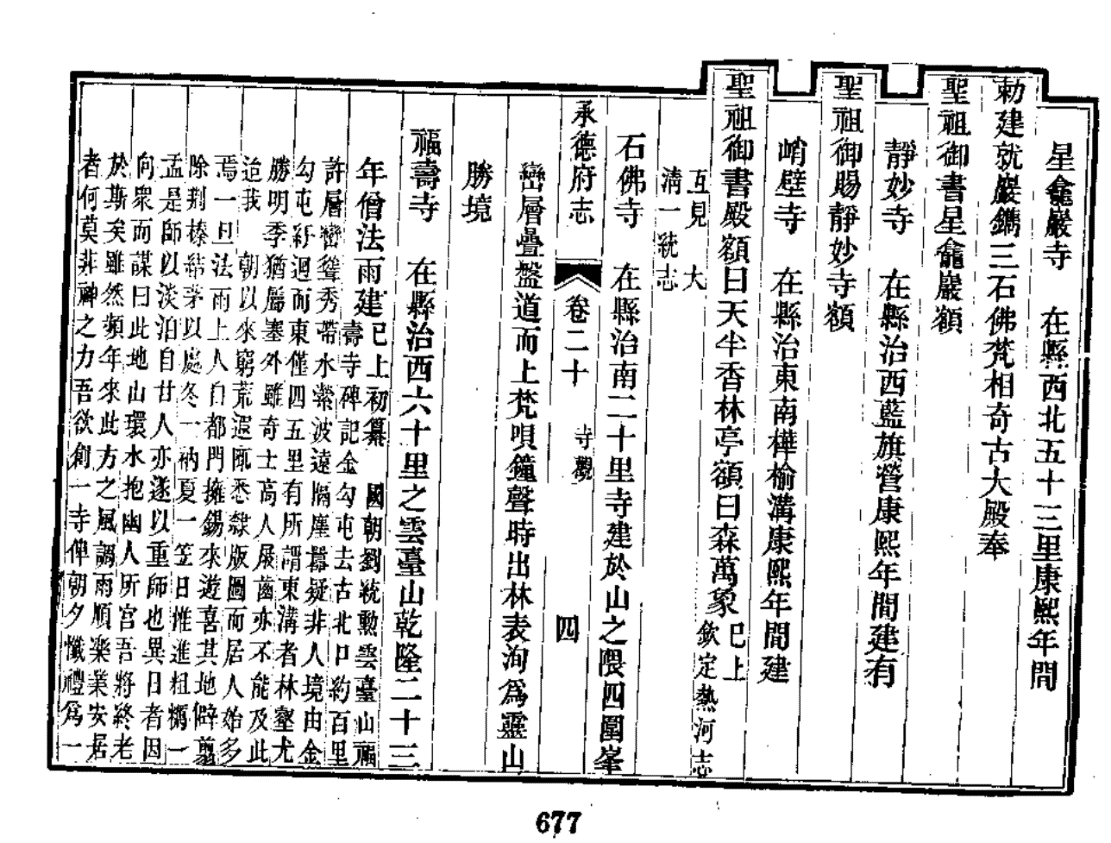 星龕巖寺　在縣西北五十三里康熙年間
勅建就巖鐫三石佛梵相奇古大殿奉
聖祖御書星龕巖額
靜妙寺　在縣治西藍旗營康熙年間建有
聖祖御賜靜妙寺額
峭壁寺　在縣治東南樺榆溝康熙年間建
聖祖御書殿額曰天半香林亭額曰森萬象已上
欽定熱河志
互見　大
清一統志
石佛寺　在縣治南二十里寺建於山之隈四圍峯
承德府志　卷二十　寺觀　四
巒層疊盤道而上梵唄鐘聲時出林表洵爲靈山
勝境
福壽寺　在縣治西六十里之雲臺山乾隆二十三
年僧法雨建已上初纂　國朝劉統勳雲臺山福
壽寺碑記金勾屯去古北口約百里
許層巒聳秀帶水縈波遠隔塵囂疑非人境由金
勾屯紆迴而東僅四五里有所謂東溝者林壑尤
勝明季猶屬塞外雖奇士高人屐齒亦不能及此
迨我　朝以來窮荒遐陬悉隸版圖而居人始多
焉一旦法雨上人自都門擁錫來遊喜其地僻翦
除荆榛結茅以處冬一衲夏一笠日惟進粗糲一
盂是師以淡泊自甘人亦遂以重師也異日者因
向衆而謀曰此地山環水抱幽人所宫吾將終老
於斯矣雖然頻年來此方之風調雨順樂業安居
者何莫非神之力吾欲創一寺俾朝夕懺禮爲一
677